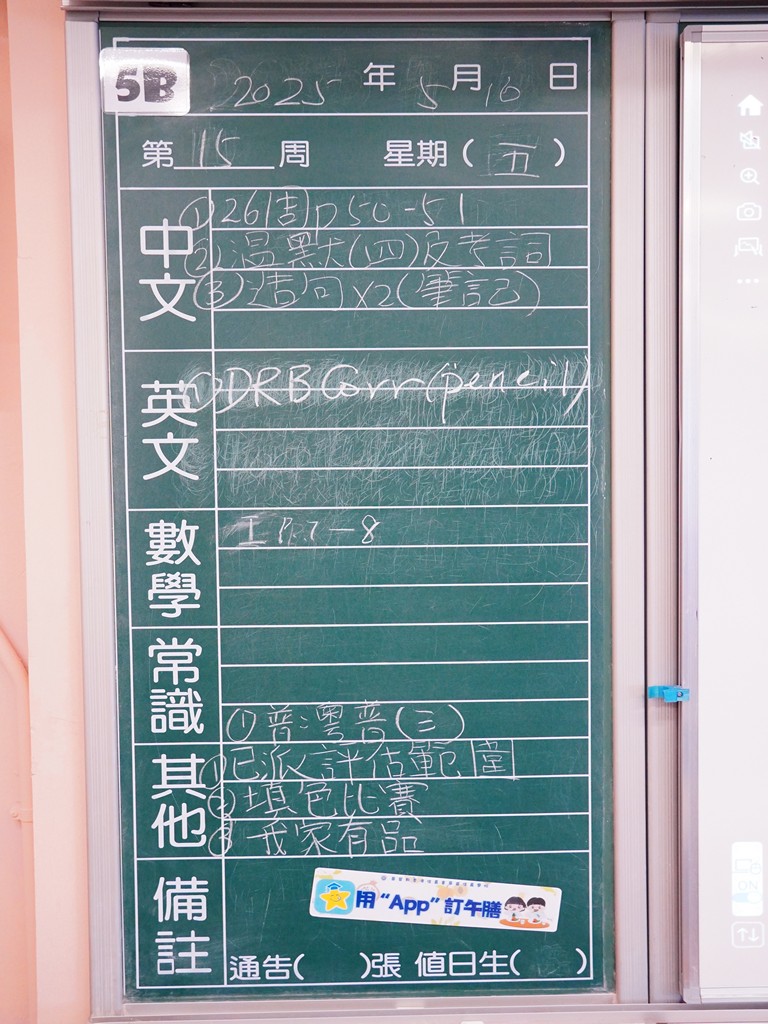 5B
2025年5月16日
第15周 星期(五)
中文
① 261周 p50-51
② 温默(四)反考詞
③ 造句x2(筆記)
英文
① DRB Corr(pencil)
數學
P.7-8
常識
① 普澳普(三)
其他
① 已派評估範圍
② 填色比賽
③ 我家有品
備註
用“App”訂午膳
通告( )張 值日生( )
ON